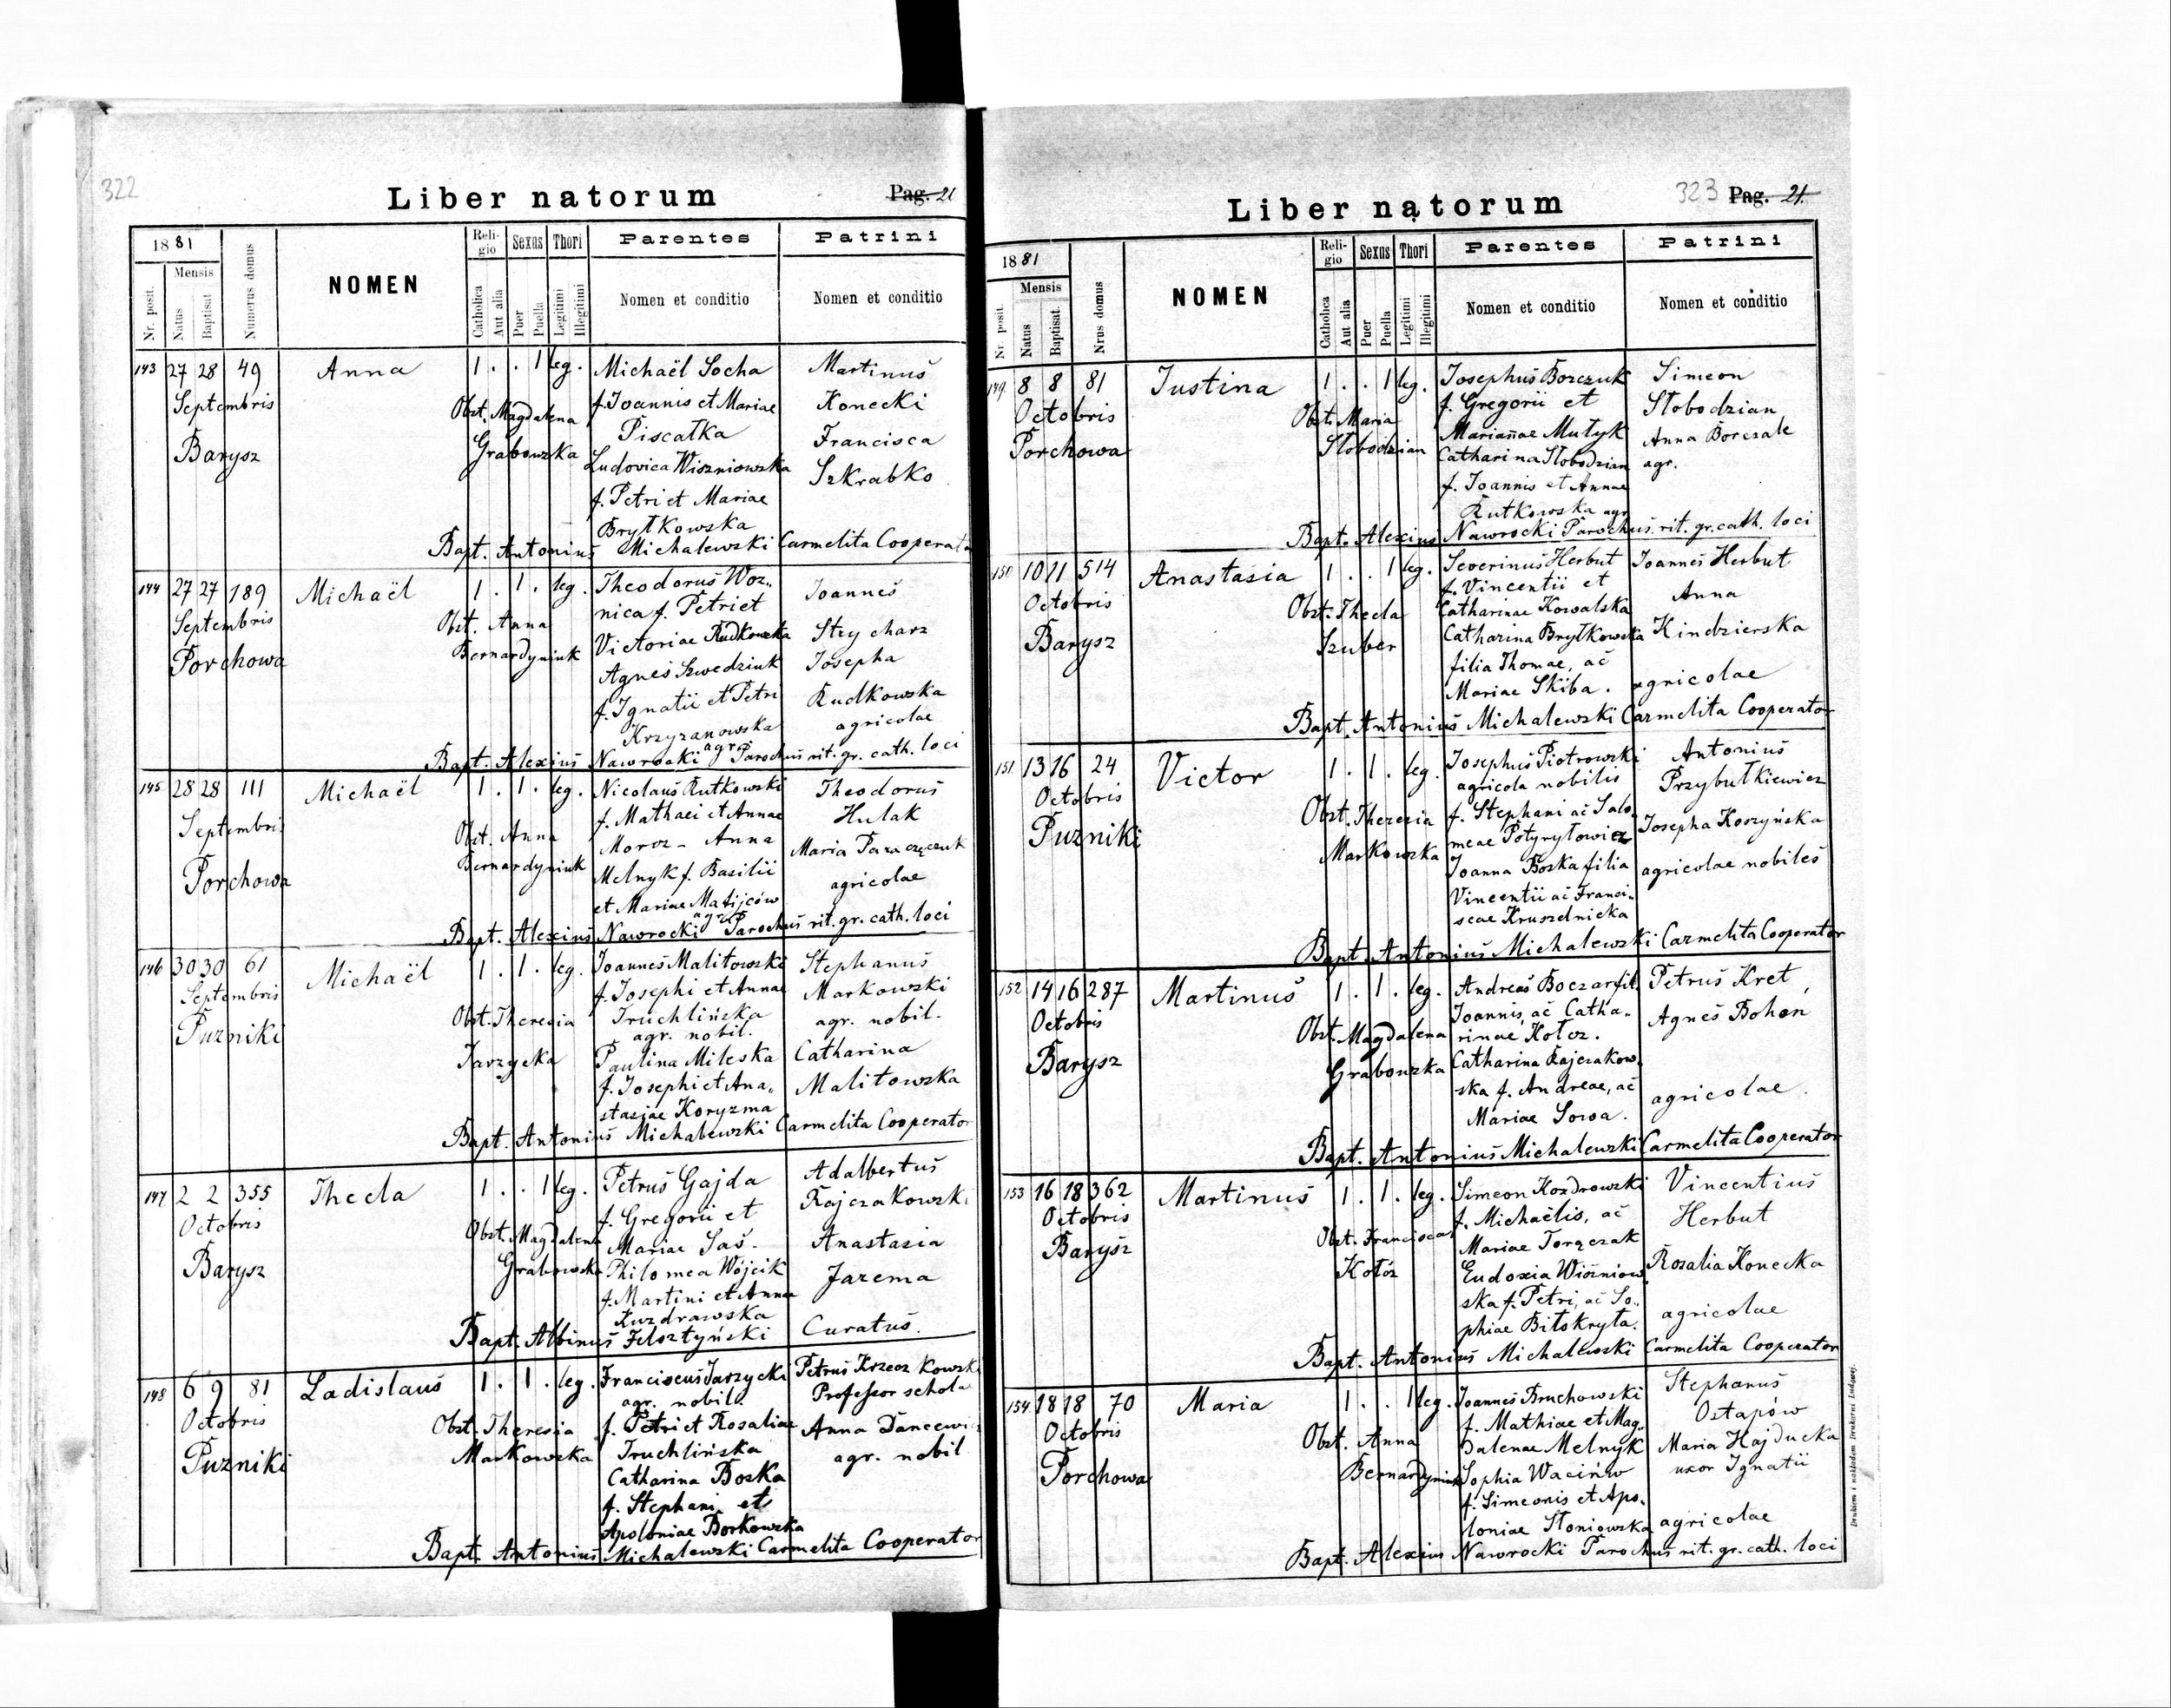 322
Liber natorum
Pag. 21
1881
Mensis
Nr. posit.
Natus
Baptisat
Numerus domus
NOMEN
Reli-
gio
Sexus
Thori
Catholica
Aut alia
Puer
Puella
Legitimi
Illegitimi
Parentes
Nomen et conditio
Patrini
Nomen et conditio
143 27 28 49 Anna 1 . . 1 leg. Michaël Socha Martinus
Septembris Obst. Magdalena f. Joannis et Mariae Konecki
Barysz Grabowska Piscałka Francisca
Ludovica Wiszniowska Szkrabko
f. Petri et Mariae
Brytkowska
Bapt. Antonius Michalewski Carmelita Cooperator
144 27 27 189 Michaël 1 . 1 . leg. Theodorus Woz„ Joannes
Septembris Obst. Anna nica f. Petri et Strycharz
Porchowa Bernardyniuk Victoriae Rudkowska Josepha
Agnes Szwedziuk Rudkowska
f. Ignatii et Petri agricolae
Krzyzanowska agr.
Bapt. Alexius Nawrocki Parochus rit. gr. cath. loci
145 28 28 111 Michaël 1 . 1 . leg. Nicolaus Rutkowski Theodorus
Septembris f. Mathaei et Annae Hulak
Obst. Anna Moroz - Anna Maria
Porchowa Bernardyniuk Melnyk f. Basilii agricolae
et Mariae Matijców
agr.
Bapt. Alexius Nawrocki Parochus rit. gr. cath. loci
146 30 30 61 Michaël 1 . 1 . leg. Joannes Malitowski Stephanus
Septembris f. Josephi et Annae Markowski
Puzniki Obst. Theresia Truchlińska agr. nobil.
agr. nobil.
Jarzycka Paulina Mileska Catharina
f. Josephi et Ana„ Malitowska
stasiae Koryzma
Bapt. Antonius Michalewski Carmelita Cooperator
147 2 2 355 Thecla 1 . . 1 leg. Petrus Gajda Adalbertus
Octobris f. Gregorii et Rajczakowski
Obst. Magdalena Mariae Saś. Anastasia
Barysz Grabowska Philomea Wójcik Jarema
f. Martini et Annae
Kuzdrawska
Bapt. Albinus Felsztyński Curatus.
148 6 9 81 Ladislaus 1 . 1 . leg. Franciscus Jarzycki Petrus Krzeczkowski
agr. nobil. Professor schola
Octobris Obst. Theresia f. Petri et Rosaliae Anna Dancewi
Puzniki Markowska Truchlińska agr. nobil
Catharina Boska
f. Stephani et
Apoloniae Borkowska
Bapt. Antonius Michalewski Carmelita Cooperator
Liber natorum
323
Pag. 21.
1881
Mensis
Nr. posit.
Natus
Baptisat.
Nrus domus
NOMEN
Reli-
gio
Sexus
Thori
Catholica
Aut alia
Puer
Puella
Legitimi
Illegitimi
Parentes
Nomen et conditio
Patrini
Nomen et conditio
149. 8 8 81 Justina 1 . . 1 leg. Josephus Borczuk Simeon
Octobris f. Gregorii et Słobodzian
Porchowa Obst. Maria Mariañae Mułyk Anna
Słobodzian Catharina Słobodzian agr.
f. Joannis et Annae
Rutkowska agr.
Bapt. Alexius Nawrocki Parochus rit. gr. cath. loci
150 10 11 514 Anastasia 1 . . 1 leg. Severinus Herbut Joannes Herbut
Octobris f. Vincentii et Anna
Obst. Thecla Catharinae Kowalska
Barysz Szuber Catharina Brytkowska Kindzierska
filia Thomae, ac
Mariae Skiba. agricolae
Bapt. Antonius Michalewski Carmelita Cooperator
151 13 16 24 Victor 1 . 1 . leg. Josephus Piotrowski Antonius
Octobris agricola nobilis Przybułkiewicz
Puzniki Obst. Theresia f. Stephani ac Salo„ Josepha Koszyńska
Markowska meae Potyryłowicz
Joanna Boska filia agricolae nobiles
Vincentii ac Franci„
scae Kruszelnicka
Bapt. Antonius Michalewski Carmelita Cooperator
152 14 16 287 Martinus 1 . 1 . leg. Andreas Boczar fil. Petrus Kret,
Octobris Joannis, ac Catha„ Agnes Bohon
Obst. Magdalena rinae Kołcz.
Barysz Grabowska Catharina Rajczakow„
ska f. Andreae, ac agricolae.
Mariae Sowa.
Bapt. Antonius Michalewski Carmelita Cooperator
153 16 18 362 Martinus 1 . 1 . leg. Simeon Kozdrowski Vincentius
Octobris f. Michaëlis, ac Herbut
Barysz Obst. Francisca Mariae Torączak
Kołóz Eudoxia Wiszniow Rosalia Konecka
ska f. Petri, ac So„ agricolae
phiae Biłokryta.
Bapt. Antonius Michalewski Carmelita Cooperator
154. 18 18 70 Maria 1 . . 1 leg. Joannes Bruchowski Stephanus
Octobris f. Mathiae et Mag„ Ostapów
Obst. Anna dalenae Melnyk Maria Hajducka
Porchowa Bernardyniuk Sophia Waciów uxor Ignatii
f. Simeonis et Apo„
loniae Słoniowska agricolae
Bapt. Alexius Nawrocki Parochus rit. gr. cath. loci
Drukiem i nakładem Drukarni Ludowej.